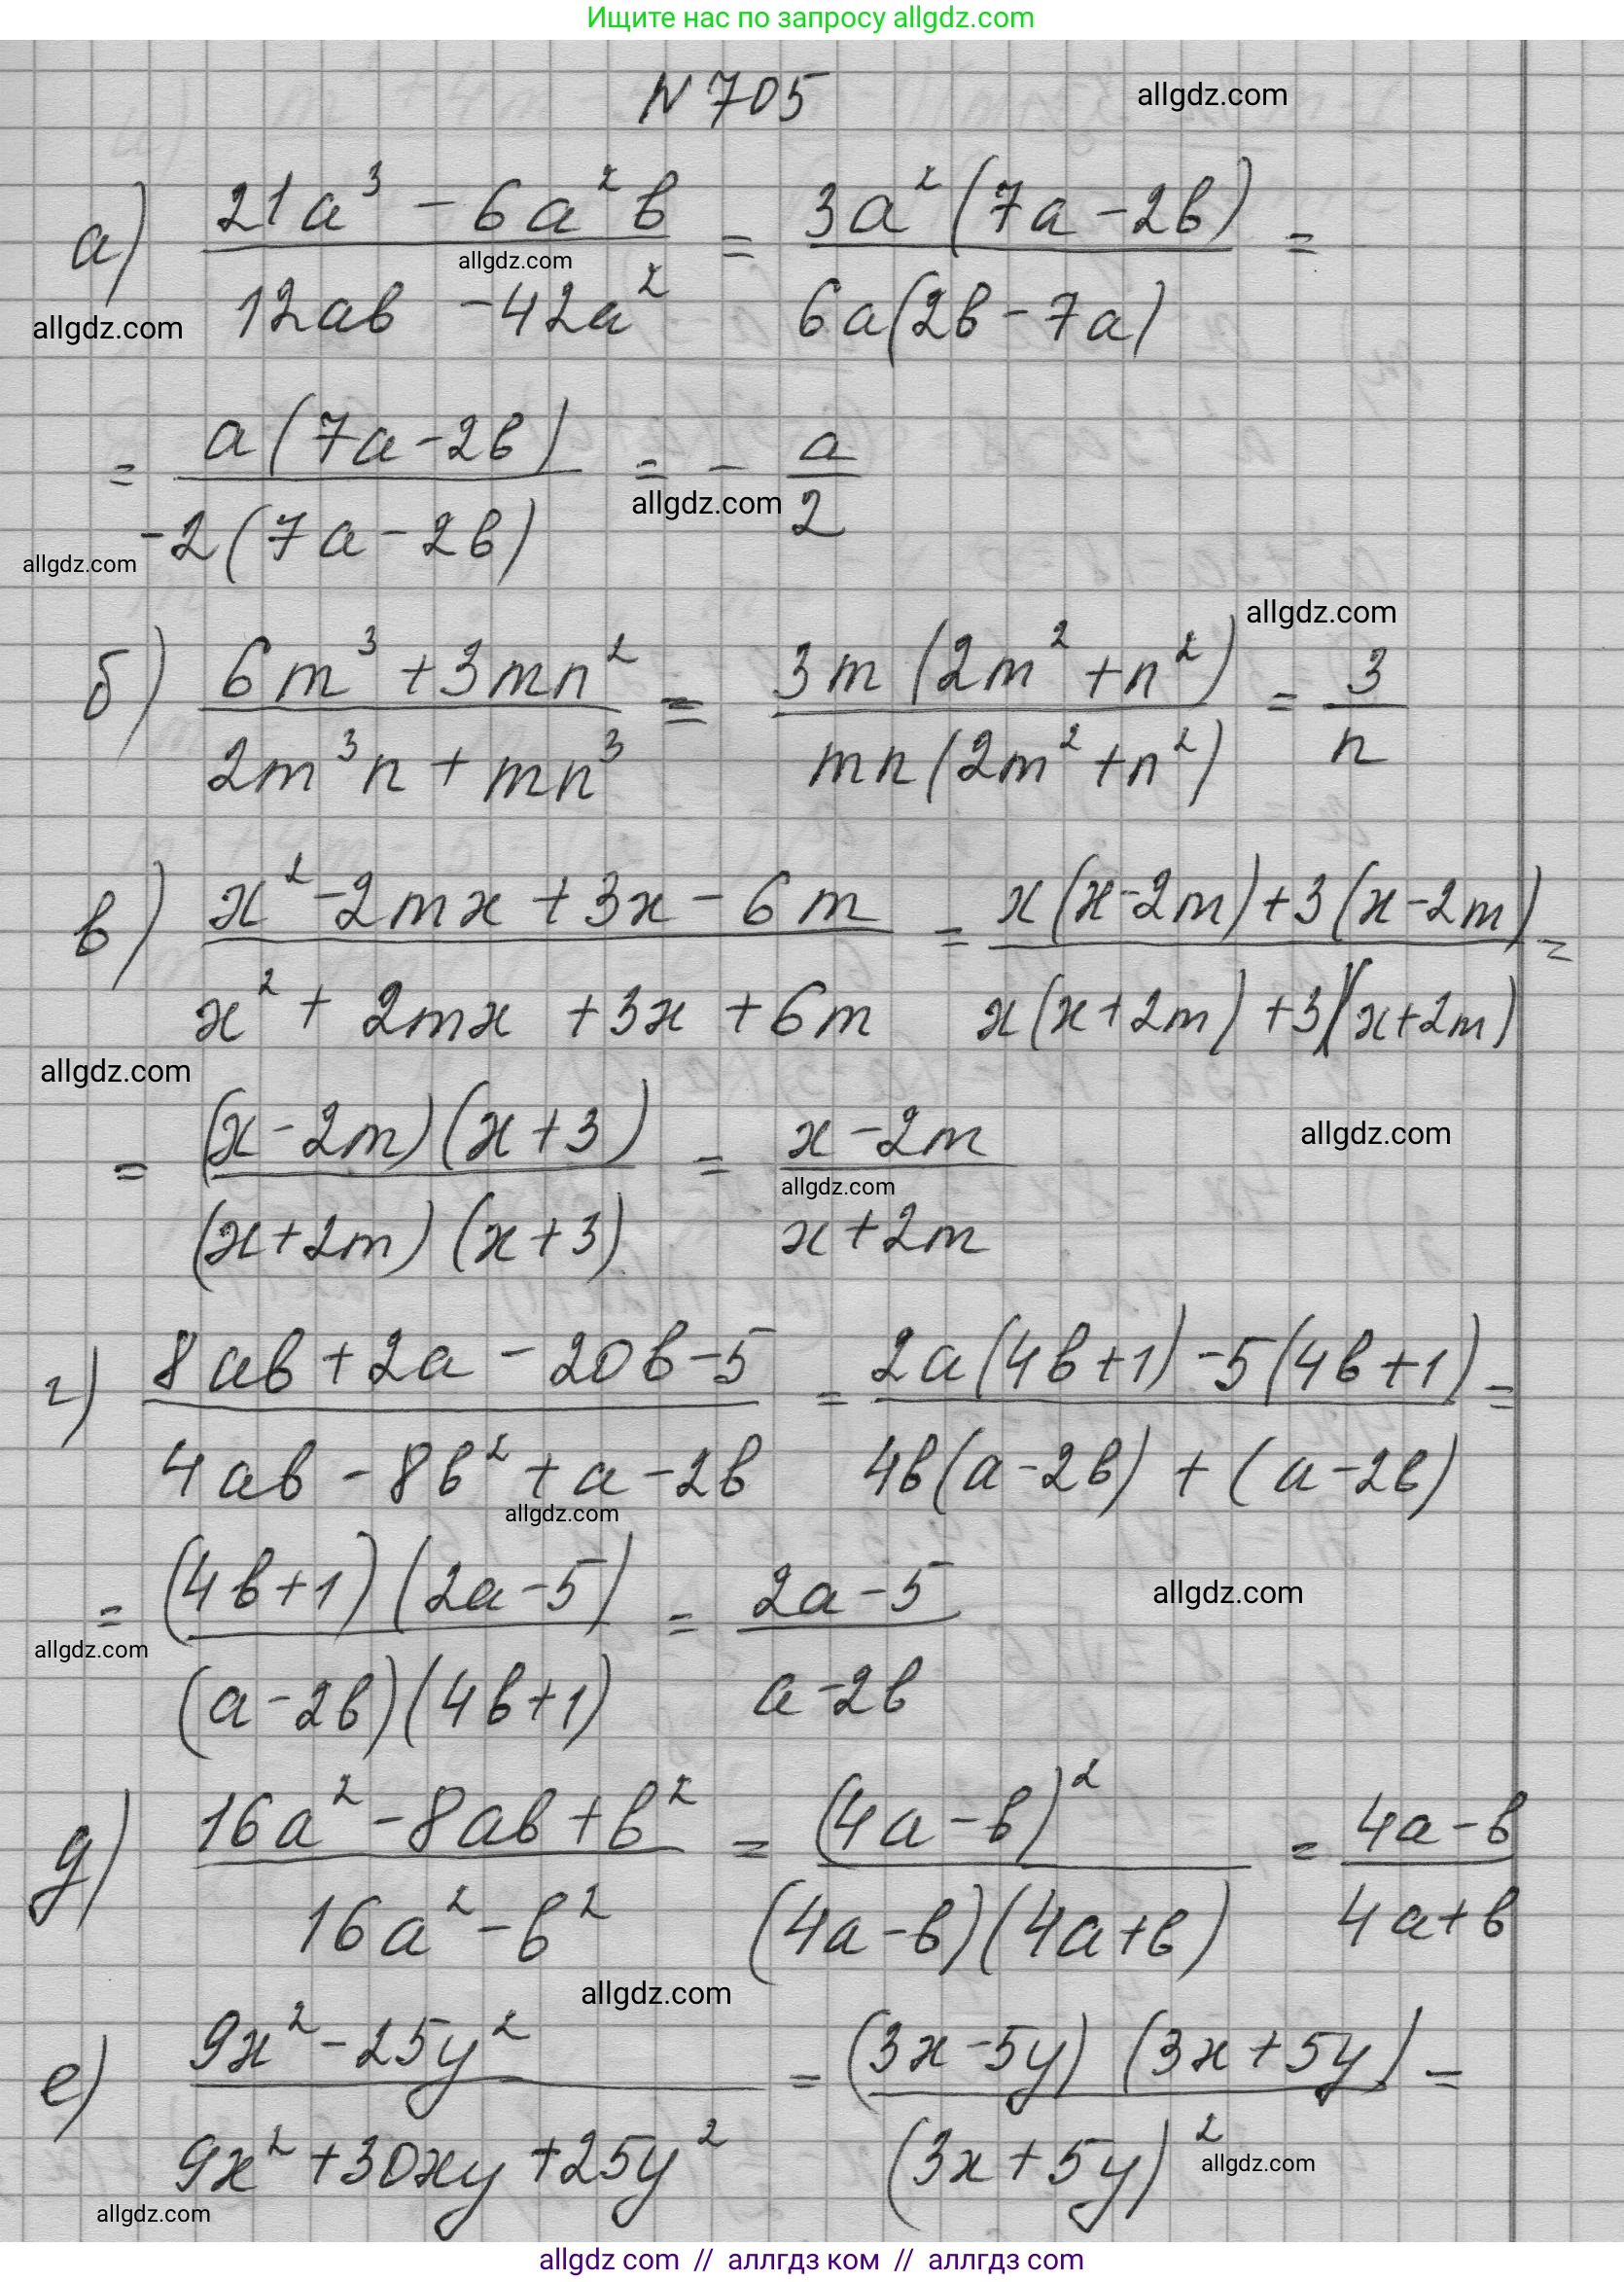 Ищите нас по запросу allgdz.com
N 705
allgdz.com
а) (21a³ - 6a²b)/(12ab - 42a²) = (3a²(7a - 2b))/(6a(2b - 7a)) =
allgdz.com
allgdz.com
= (a(7a - 2b))/(-2(7a - 2b)) = - a/2
allgdz.com
allgdz.com
allgdz.com
б) (6m³ + 3mn²)/(2m³n + mn³) = (3m(2m² + n²))/(mn(2m² + n²)) = 3/n
в) (x² - 2mx + 3x - 6m)/(x² + 2mx + 3x + 6m) = (x(x - 2m) + 3(x - 2m))/(x(x + 2m) + 3(x + 2m)) =
allgdz.com
allgdz.com
= ((x - 2m)(x + 3))/((x + 2m)(x + 3)) = (x - 2m)/(x + 2m)
allgdz.com
г) (8ab + 2a - 20b - 5)/(4ab - 8b² + a - 2b) = (2a(4b + 1) - 5(4b + 1))/(4b(a - 2b) + (a - 2b)) =
allgdz.com
= ((4b + 1)(2a - 5))/((a - 2b)(4b + 1)) = (2a - 5)/(a - 2b)
allgdz.com
allgdz.com
д) (16a² - 8ab + b²)/(16a² - b²) = (4a - b)²/((4a - b)(4a + b)) = (4a - b)/(4a + b)
allgdz.com
е) (9x² - 25y²)/(9x² + 30xy + 25y²) = ((3x - 5y)(3x + 5y))/(3x + 5y)² =
allgdz.com
allgdz.com
allgdz com // аллгдз ком // аллгдз com